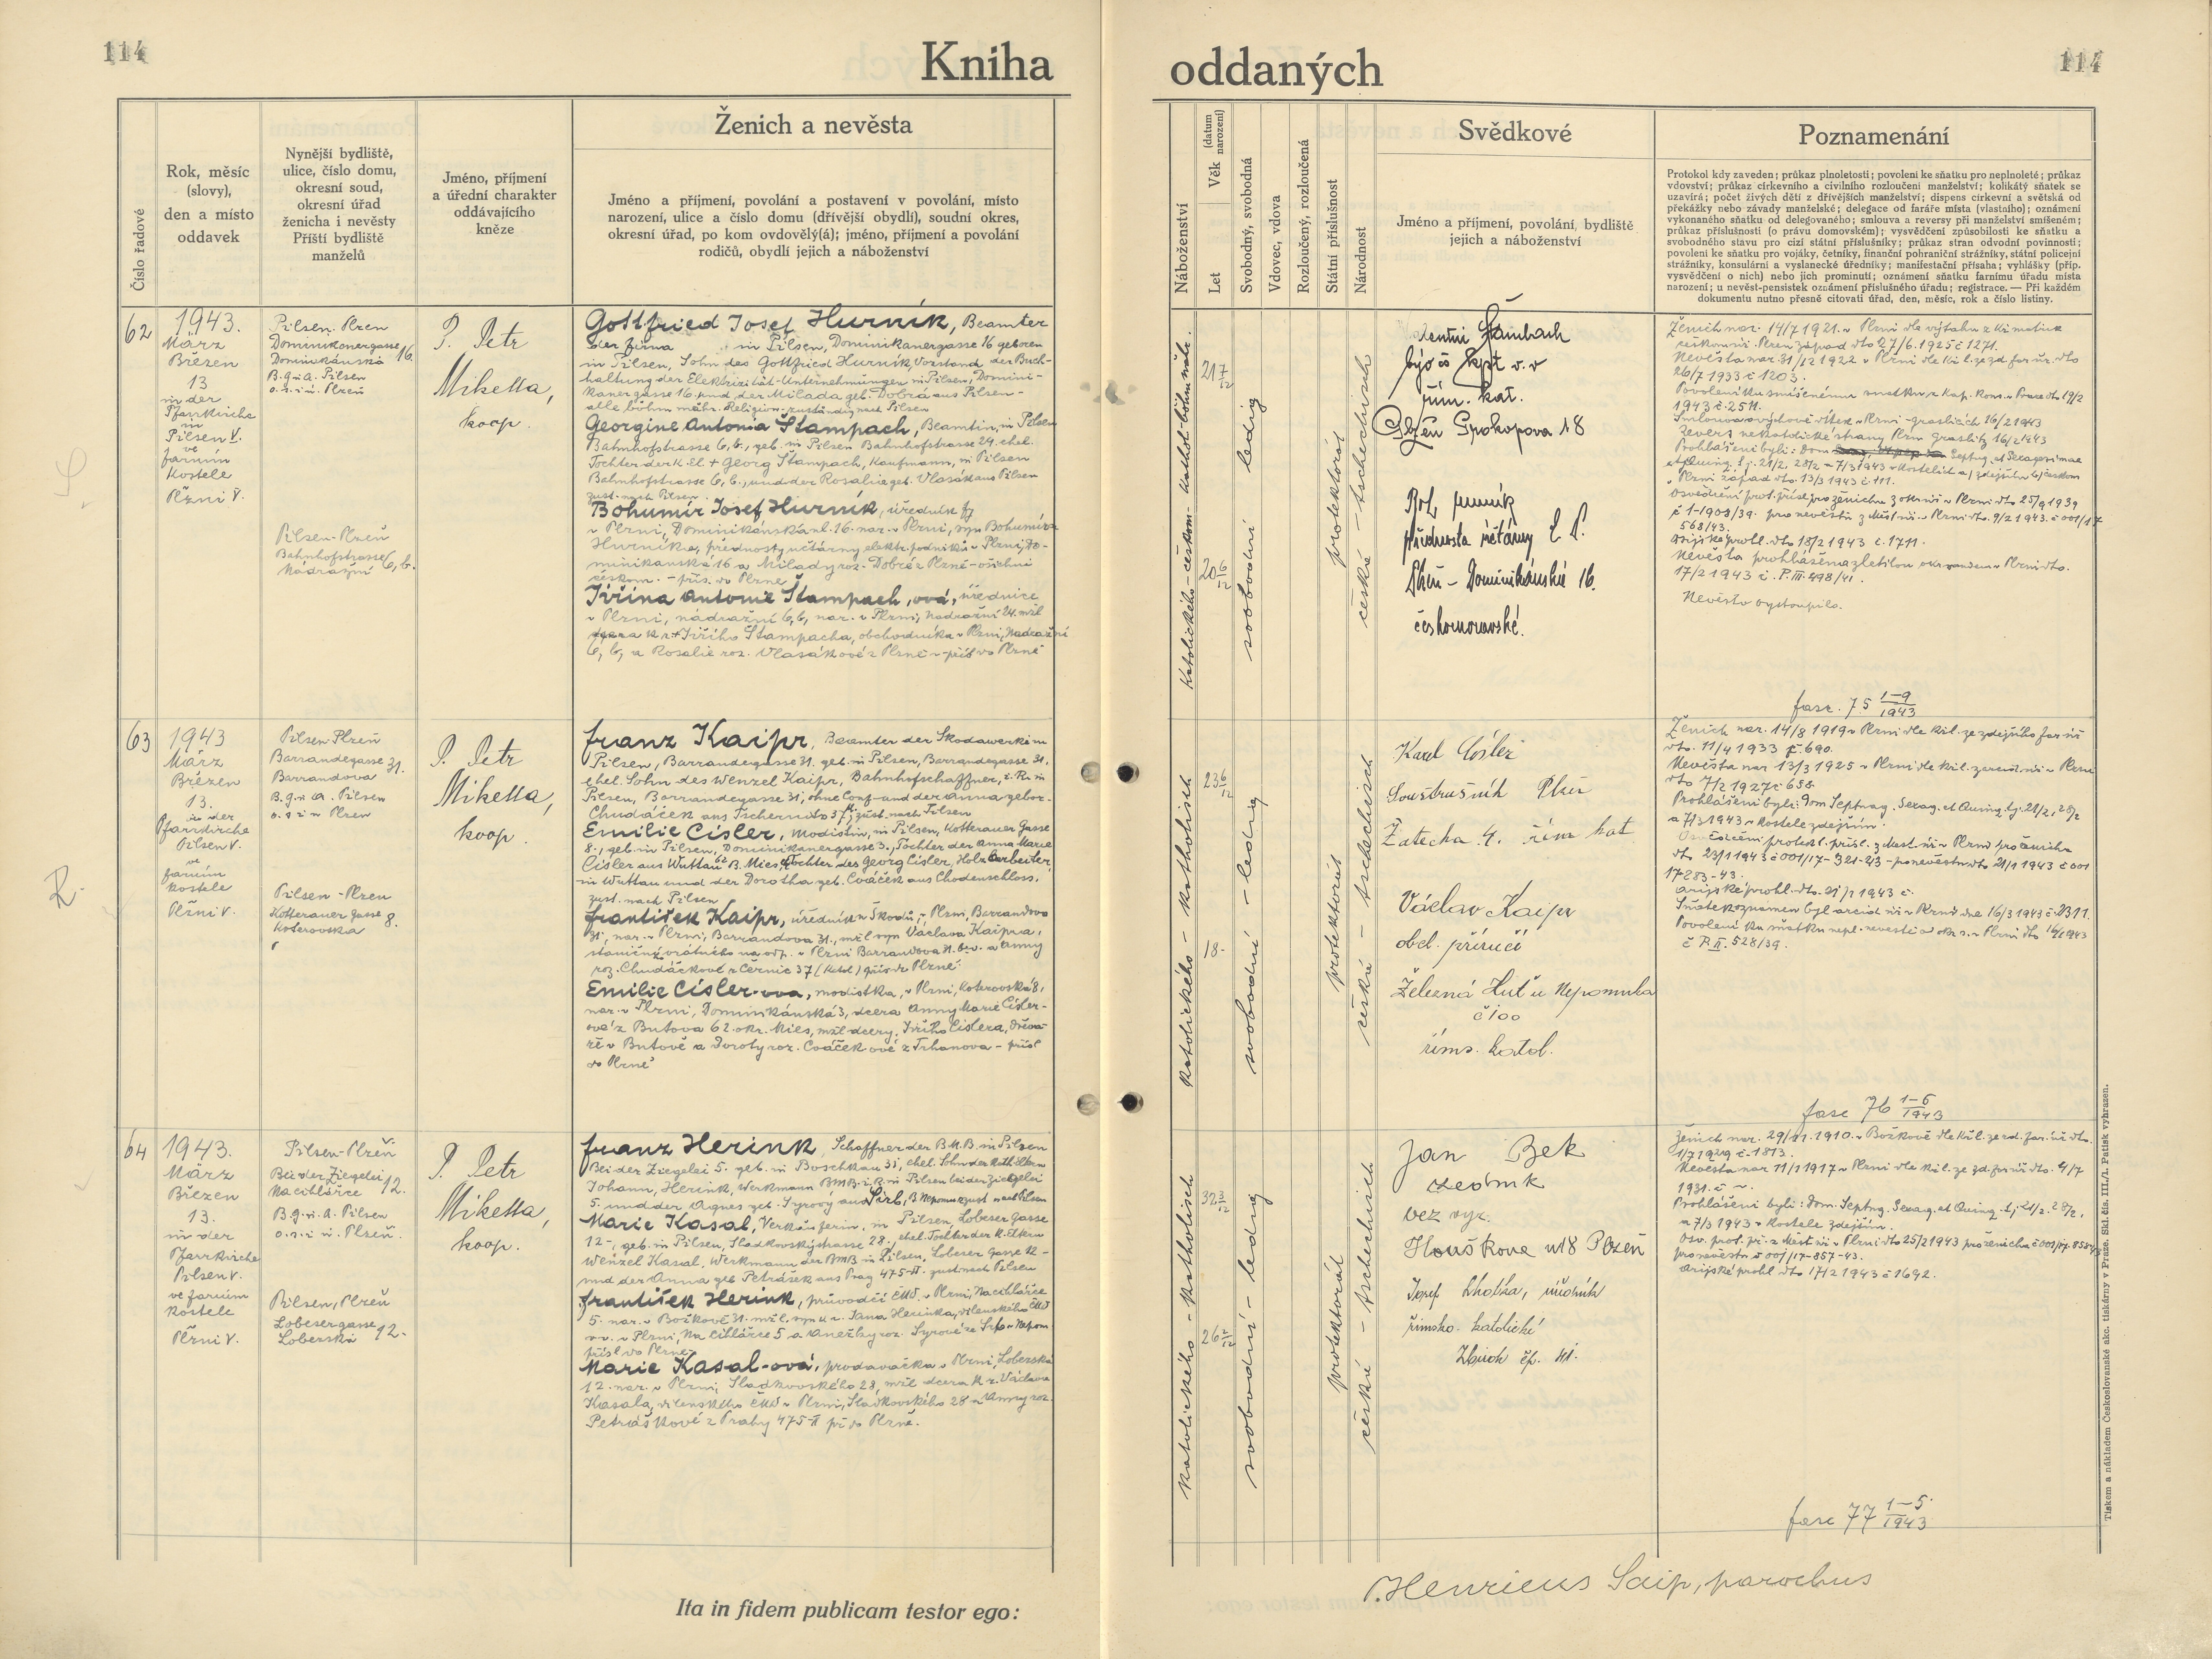 114
Kniha
Číslo řadové
Rok, měsíc
(slovy),
den a místo
oddavek
Nynější bydliště,
ulice, číslo domu,
okresní soud,
okresní úřad
ženicha i nevěsty
Příští bydliště
manželů
Jméno, příjmení
a úřední charakter
oddávajícího
kněze
Ženich a nevěsta
Jméno a příjmení, povolání a postavení v povolání, místo
narození, ulice a číslo domu (dřívější obydlí), soudní okres,
okresní úřad, po kom ovdovělý(á); jméno, příjmení a povolání
rodičů, obydlí jejich a náboženství
62
1943.
März
Březen
13
in der
Pfarrkirche
in
Pilsen V.
ve
farním
Kostele
Plzni V.
Pilsen-Plzeň
Dominikanergasse
Dominikánská 16.
B.g.i.a. Pilsen
o.s.i.ú. Plzeň
Pilsen-Plzeň
Bahnhofstrasse 6, b.
Nádražní
P. Petr
Miketta,
koop.
Gottfried Josef Hurník, Beamter
der Firma in Pilsen, Dominikanergasse 16 geboren
in Pilsen, Sohn des Gottfried Hurník, Vorstand der Buch-
haltung der Elektrizität-Unternehmungen in Pilsen, Domini-
kanergasse 16. und der Milada geb. Dobrá aus Pilsen-
alle böhm mähr. Religion. zuständig nach Pilsen
Georgine Antonia Štampach, Beamtin, in Pilsen
Bahnhofstrasse 6, b., geb. in Pilsen Bahnhofstrasse 24. ehel.
Tochter der K. El. + Georg Štampach, Kaufmann, in Pilsen
Bahnhofstrasse 6, b., und der Rosalie geb. Vlasák aus Pilsen
zust. nach Pilsen.
Bohumír Josef Hurník, úředník fy
v Plzni, Dominikánská ul. 16. nar. v Plzni, syn Bohumíra
Hurníka, přednosty účtárny elektr. podniků v Plzni, Do-
minikánská 16 a Milady roz. Dobré z Plzně - všichni
českom. - přís. do Plzně
Jiřina Antonie Štampach, ová, úřednice
v Plzni, nádražní 6, b, nar. v Plzni, Nádražní 24. mžl
dcera k.r. + Jiřího Štampacha, obchodníka v Plzni, Nádražní
6, b, a Rosalie roz. Vlasákové z Plzně - přís do Plzně
63
1943
März
Březen
13.
in der
Pfarrkirche
Pilsen V.
ve
farním
kostele
Plzni V.
Pilsen-Plzeň
Barrandegasse 31.
Barrandova
B.g.i a. Pilsen
o. s i ú Plzen
Pilsen - Plzen
Kotterauer Gasse 8.
Koterovska
P. Petr
Miketta,
koop.
Franz Kaipr, Beamter der Škodawerke in
Pilsen, Barrandegasse 31. geb. in Pilsen, Barrandegasse 31.
ehel. Sohn des Wenzel Kaipr, Bahnhofschaffner, i. R. in
Pilsen, Barrandegasse 31, ohne Conf. und der Anna gebor.
Chudáček aus Tschernitz 37, zust. nach Pilsen
Emilie Cisler, Modistin, in Pilsen, Kotterauer Gasse
8., geb. in Pilsen, Dominikanergasse 3., Tochter der Anna Marie
Cisler aus Wuttau 62 B. Mies, Tochter des Georg Cisler, Holzarbeiter,
in Wuttau und der Dorothea geb. Cváček aus Chodenschloss.
zust. nach Pilsen
František Kaipr, úředník Škodů, v Plzni, Barrandova
31, nar. v Plzni, Barrandova 31., mžl syn Václava Kaipra,
staničný vrátného na odp. v Plzni Barrandova 31. bev. a Anny
roz. Chudáčkové z Černic 37 (katol) přís do Plzně.
Emilie Cisler-ova, modistka, v Plzni, Koterovská 8,
nar. v Plzni, Dominikánská 3, dcera Anny Marie Cisler-
ové z Butova 62. okr. Mies, mžl dcery, Jiřího Cislera, dřeva-
ře v Butově a Doroty roz. Cváčkové z Trhanova - přísl
do Plzně
64
1943.
März
Březen
13.
in der
Pfarrkirche
Pilsen V.
ve farním
kostele
Plzni V.
Pilsen-Plzeň
Bei der Ziegelei 12.
Na cihlářce
B.g.i. A. Pilsen
o.s.i ú. Plzeň.
Pilsen, Plzeň
Lobesergasse 12.
Lobezská
P. Petr
Miketta,
koop.
Franz Herink, Schaffner der B.M.B. in Pilsen
Bei der Ziegelei 5. geb. in Boschkau 31, ehel. Sohn der Kath. Eltern
Johann, Herink, Werkmann BMB i. R. in Pilsen bei der Ziegelei
5. und der Agnes geb. Syrový aus Sirb, B. Nepomuk zust nach Pilsen
Marie Kasal, Verkäuferin, in Pilsen, Lobeser gasse
12-, geb. in Pilsen, Sladkovskýstrasse 28., ehel. Tochter der K. Eltern
Wenzel Kasal, Werkmann der BMB in Pilsen, Lobeser Gasse 12-
und der Anna geb Petrášek aus Prag 475-II. zust nach Pilsen
František Herink, průvodčí ČMD v Plzni, Na cihlářce
5. nar. v Božkově 31. mžl. syn k.r. Jana Herinka, dílenského ČMD
v.v. v Plzni, Na Cihlářce 5 a Anežky roz. Syrové ze Srb u Nepom.
přísl do Plzně.
Marie Kasal-ová, prodavačka v Plzni, Lobezská
12. nar. v Plzni, Sladkovského 28, mžl dcera k. r. Václava
Kasala, dílenského ČMD v Plzni, Sladkovského 28 a Anny roz.
Petráškové z Prahy 475-II př do Plzně.
Ita in fidem publicam testor ego:
oddaných
114
Náboženství
Věk (datum narození)
Let
Svobodný, svobodná
Vdovec, vdova
Rozloučený, rozloučená
Státní příslušnost
Národnost
Svědkové
Jméno a příjmení, povolání, bydliště
jejich a náboženství
Poznamenání
Protokol kdy zaveden; průkaz plnoletosti; povolení ke sňatku pro neplnoleté; průkaz
vdovství; průkaz církevního a civilního rozloučení manželství; kolikátý sňatek se
uzavírá; počet živých dětí z dřívějších manželství; dispens církevní a světská od
překážky nebo závady manželské; delegace od faráře místa (vlastního); oznámení
vykonaného sňatku od delegovaného; smlouva a reversy při manželství smíšeném;
průkaz příslušnosti (o právu domovském); vysvědčení způsobilosti ke sňatku a
svobodného stavu pro cizí státní příslušníky; průkaz stran odvodní povinnosti;
povolení ke sňatku pro vojáky, četníky, finanční pohraniční strážníky, státní policejní
strážníky, konsulární a vyslanecké úředníky; manifestační přísaha; vyhlášky (příp.
vysvědčení o nich) nebo jich prominutí; oznámení sňatku farnímu úřadu místa
narození; u nevěst-pensistek oznámení příslušného úřadu; registrace. — Při každém
dokumentu nutno přesně citovati úřad, den, měsíc, rok a číslo listiny.
21 7/12
20 6/12
svobodní ledig
protektorát
české - tschechisch
kpt v.v
řím. kat.
Plzeň Prokopova 18
přednosta účtárny
Plzeň - Dominikánská 16.
českomoravské.
Ženich nar. 14/7 1921. v Plzni dle výtahu z
Plzen západ dto 27/6. 1925 č 1271.
Nevěsta nar. 31/12 1922 v Plzni dle kř. l. ze zd far úř. dto
26/7 1933 č 1203.
1943 č. 2511.
568/43.
Arijské prohl. dto 18/2 1943 č. 1711.
17/2 1943 č. P. III. 498/41.
Nevěsta vystoupila.
fasc. 75 1-9/1943
katolického - katholisch
23 6/12
18.
svobodní - ledig
protektorát
české - tschechisch
Karel Cisler
Soustružník Plzeň
Žatecka 4. řím kat
Václav Kaipr
obch. příručí
Železná Huť u Nepomuka
č 100
říms. katol.
Ženich nar. 14/8 1919 v Plzni dle kř. l. ze zdejšího far úř
dto. 11/4 1933 č. 690.
Nevěsta nar 13/3 1925 v Plzni dle kř. l.
dto 7/2 1927 č 658.
Prohlášeni byli: Dom Septuag. Sexag. et Quinq. t.j. 21/2, 28/2
a 7/3 1943 v kostele zdejším.
17283-43.
Arijské prohl. dto. 21/1 1943 č.
Sňatek oznamen byl arcid úř v Plzni dne 16/3 1943 č. 2311.
č P. II. 528/39.
fasc 76 1-6/1943
katolického - katholisch
32 3/12
26 2/12
svobodní - ledig
protektorát
české - tschechisch
Jan Bek
zedník
bez vyz.
Houškova ul 8 Plzeň
Josef Lhotka, úředník
římsko-katolické
Zbiroh čp. 41.
Ženich nar. 29/11. 1910. v Božkově dle kř. l. ze zd. far. úř dto.
1/7 1929 č. 1813.
Nevěsta nar 11/1 1917 v Plzni dle kř. l. ze zd. far úř dto. 4/7
1931. č ~.
Prohlášeni byli: Dom. Septuag. Sexag. et Quinq. t.j. 21/2. 28/2.
a 7/3 1943 v kostele zdejším.
pro nevěstu č 001/17-857-43.
Arijské prohl dto 17/2 1943 č 1692.
fasc 77 1-5/1943
P. Henricus Saip, parochus
Tiskem a nákladem Československé akc. tiskárny v Praze. Skl. čís. III./1. Patisk vyhrazen.